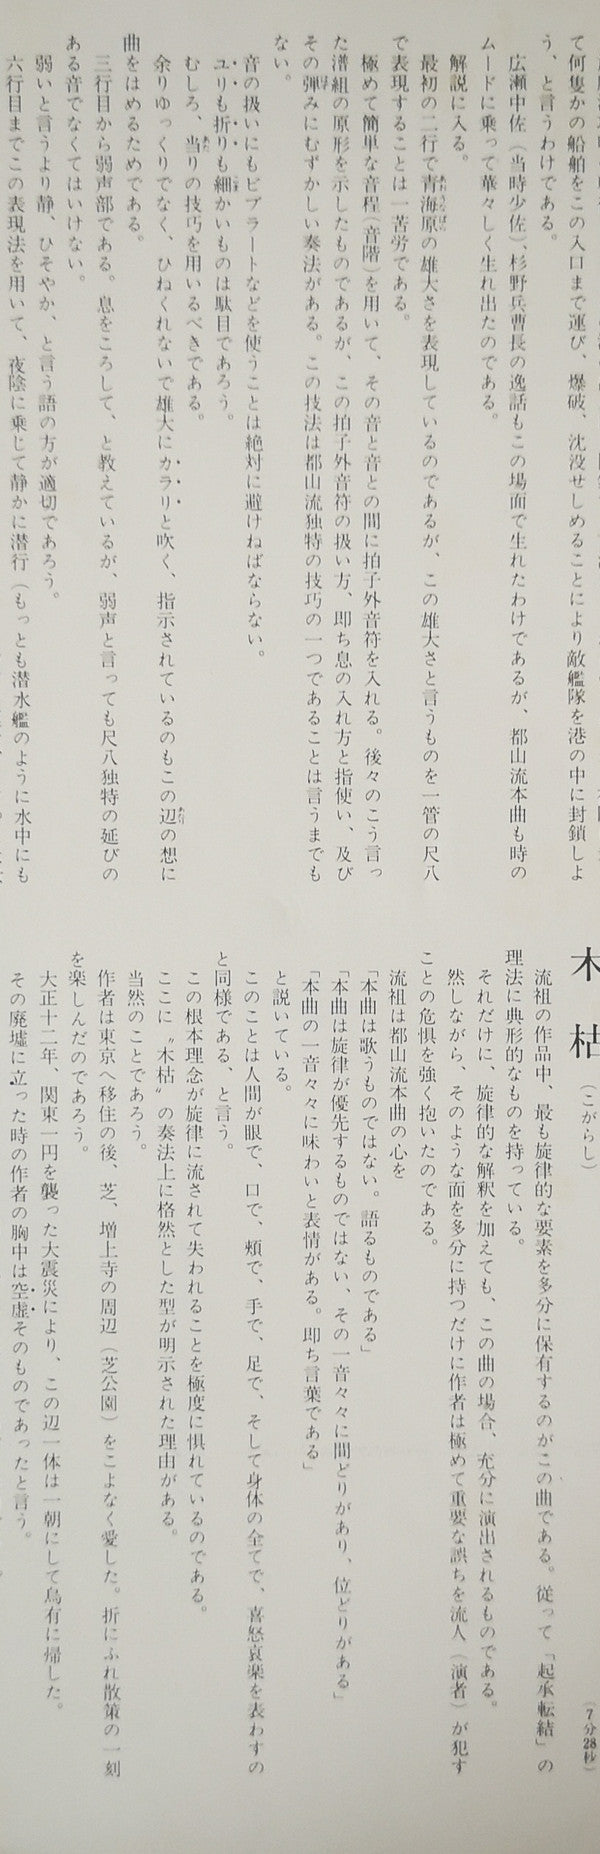 て何隻かの船舶をこの入口まで運び、爆破、沈没せしめることにより敵艦隊を港の中に封鎖しよ
う、と言うわけである。
広瀬中佐（当時少佐）、杉野兵曹長の逸話もこの場面で生れたわけであるが、都山流本曲も時の
ムードに乗って華々しく生れ出たのである。
解説に入る。
最初の二行で青海原の雄大さを表現しているのであるが、この雄大さと言うものを一管の尺八
で表現することは一苦労である。
極めて簡単な音程（音階）を用いて、その音と音との間に拍子外音符を入れる。後々のこう言っ
た譜組の原形を示したものであるが、この拍子外音符の扱い方、即ち息の入れ方と指使い、及び
その弾みにむずかしい奏法がある。この技法は都山流独特の技巧の一つであることは言うまでも
ない。
音の扱いにもビブラートなどを使うことは絶対に避けねばならない。
ユリも折りも細かいものは駄目であろう。
むしろ、当りの技巧を用いるべきである。
余りゆっくりでなく、ひねくれないで雄大にカラリと吹く、指示されているのもこの辺の想に
曲をはめるためである。
三行目から弱声部である。息をころして、と教えているが、弱声と言っても尺八独特の延びの
ある音でなくてはいけない。
弱いと言うより静、ひそやか、と言う語の方が適切であろう。
六行目までこの表現法を用いて、夜陰に乗じて静かに潜行（もっとも潜水艦のように水中にも
木枯（こがらし）（7分28秒）
流祖の作品中、最も旋律的な要素を多分に保有するのがこの曲である。従って「起承転結」の
理法に典形的なものを持っている。
それだけに、旋律的な解釈を加えても、この曲の場合、充分に演出されるものである。
然しながら、そのような面を多分に持つだけに作者は極めて重要な誤ちを流人（演者）が犯す
ことの危惧を強く抱いたのである。
流祖は都山流本曲の心を
「本曲は歌うものではない。語るものである」
「本曲は旋律が優先するものではない、その一音々々に間どりがあり、位どりがある」
「本曲の一音々々に味わいと表情がある。即ち言葉である」
と説いている。
このことは人間が眼で、口で、頬で、手で、足で、そして身体の全てで、喜怒哀楽を表わすの
と同様である、と言う。
この根本理念が旋律に流されて失われることを極度に惧れているのである。
ここに〝木枯〟の奏法上に格然とした型が明示された理由がある。
当然のことであろう。
作者は東京へ移住の後、芝、増上寺の周辺（芝公園）をこよなく愛した。折にふれ散策の一刻
を楽しんだのであろう。
大正十二年、関東一円を襲った大震災により、この辺一体は一朝にして烏有に帰した。
その廃墟に立った時の作者の胸中は空虚そのものであったと言う。